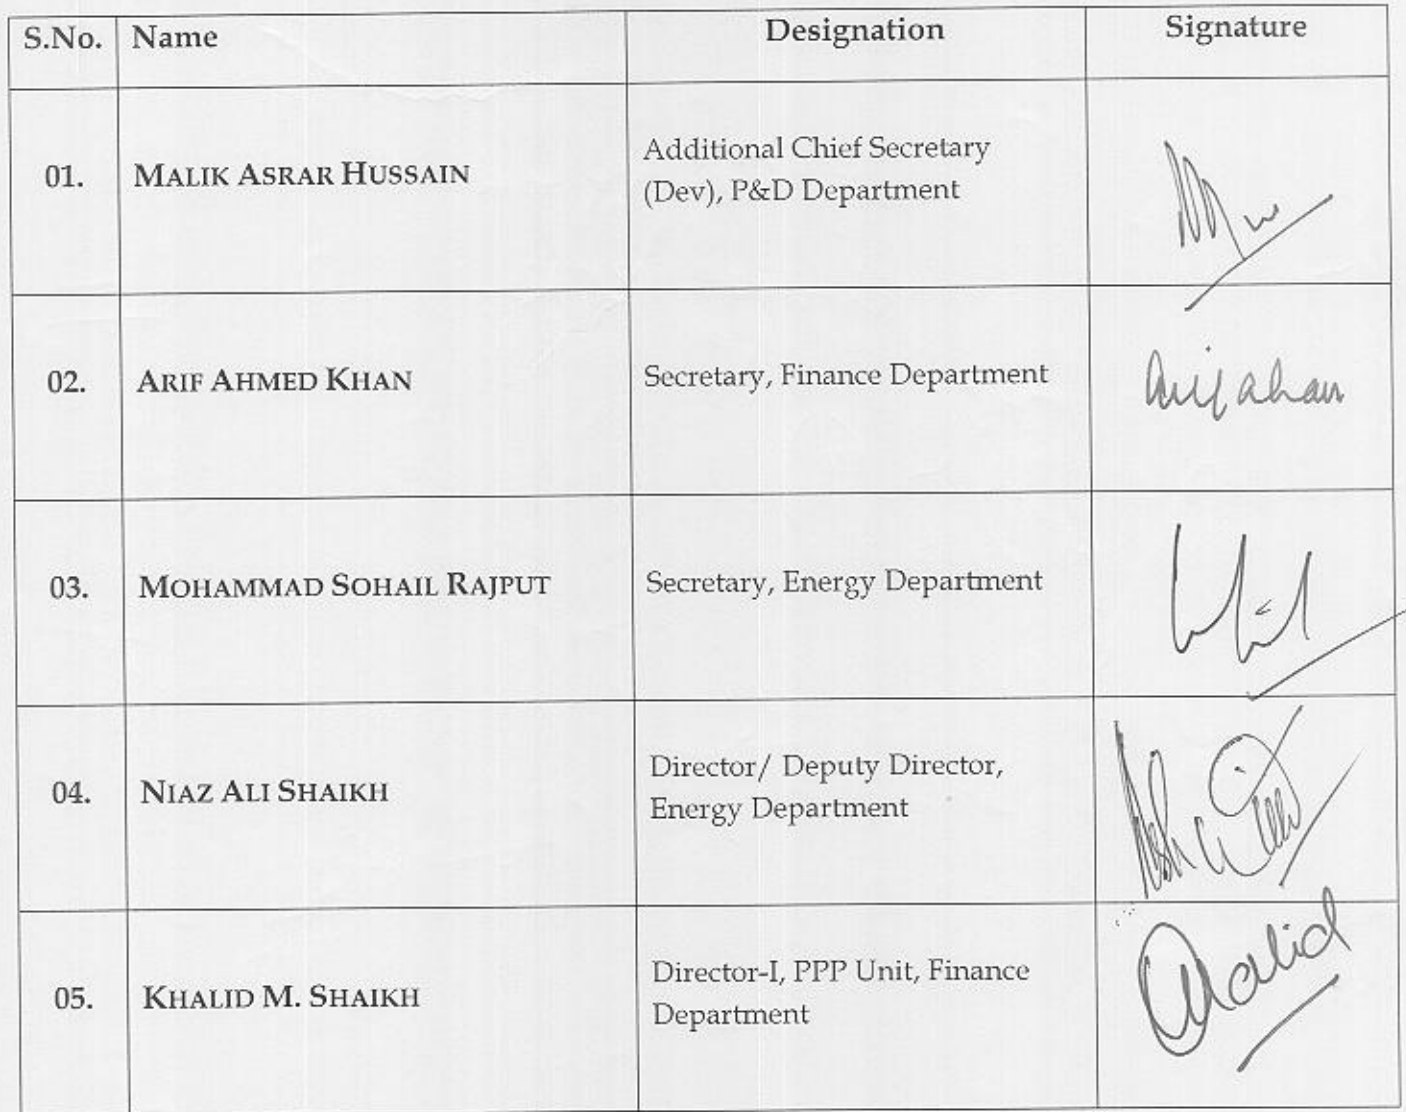 S.No. Name Designation Signature
01. MALIK ASRAR HUSSAIN Additional Chief Secretary
(Dev), P&D Department
02. ARIF AHMED KHAN Secretary, Finance Department
03. MOHAMMAD SOHAIL RAJPUT Secretary, Energy Department
04. NIAZ ALI SHAIKH Director/ Deputy Director,
Energy Department
05. KHALID M. SHAIKH Director-I, PPP Unit, Finance
Department